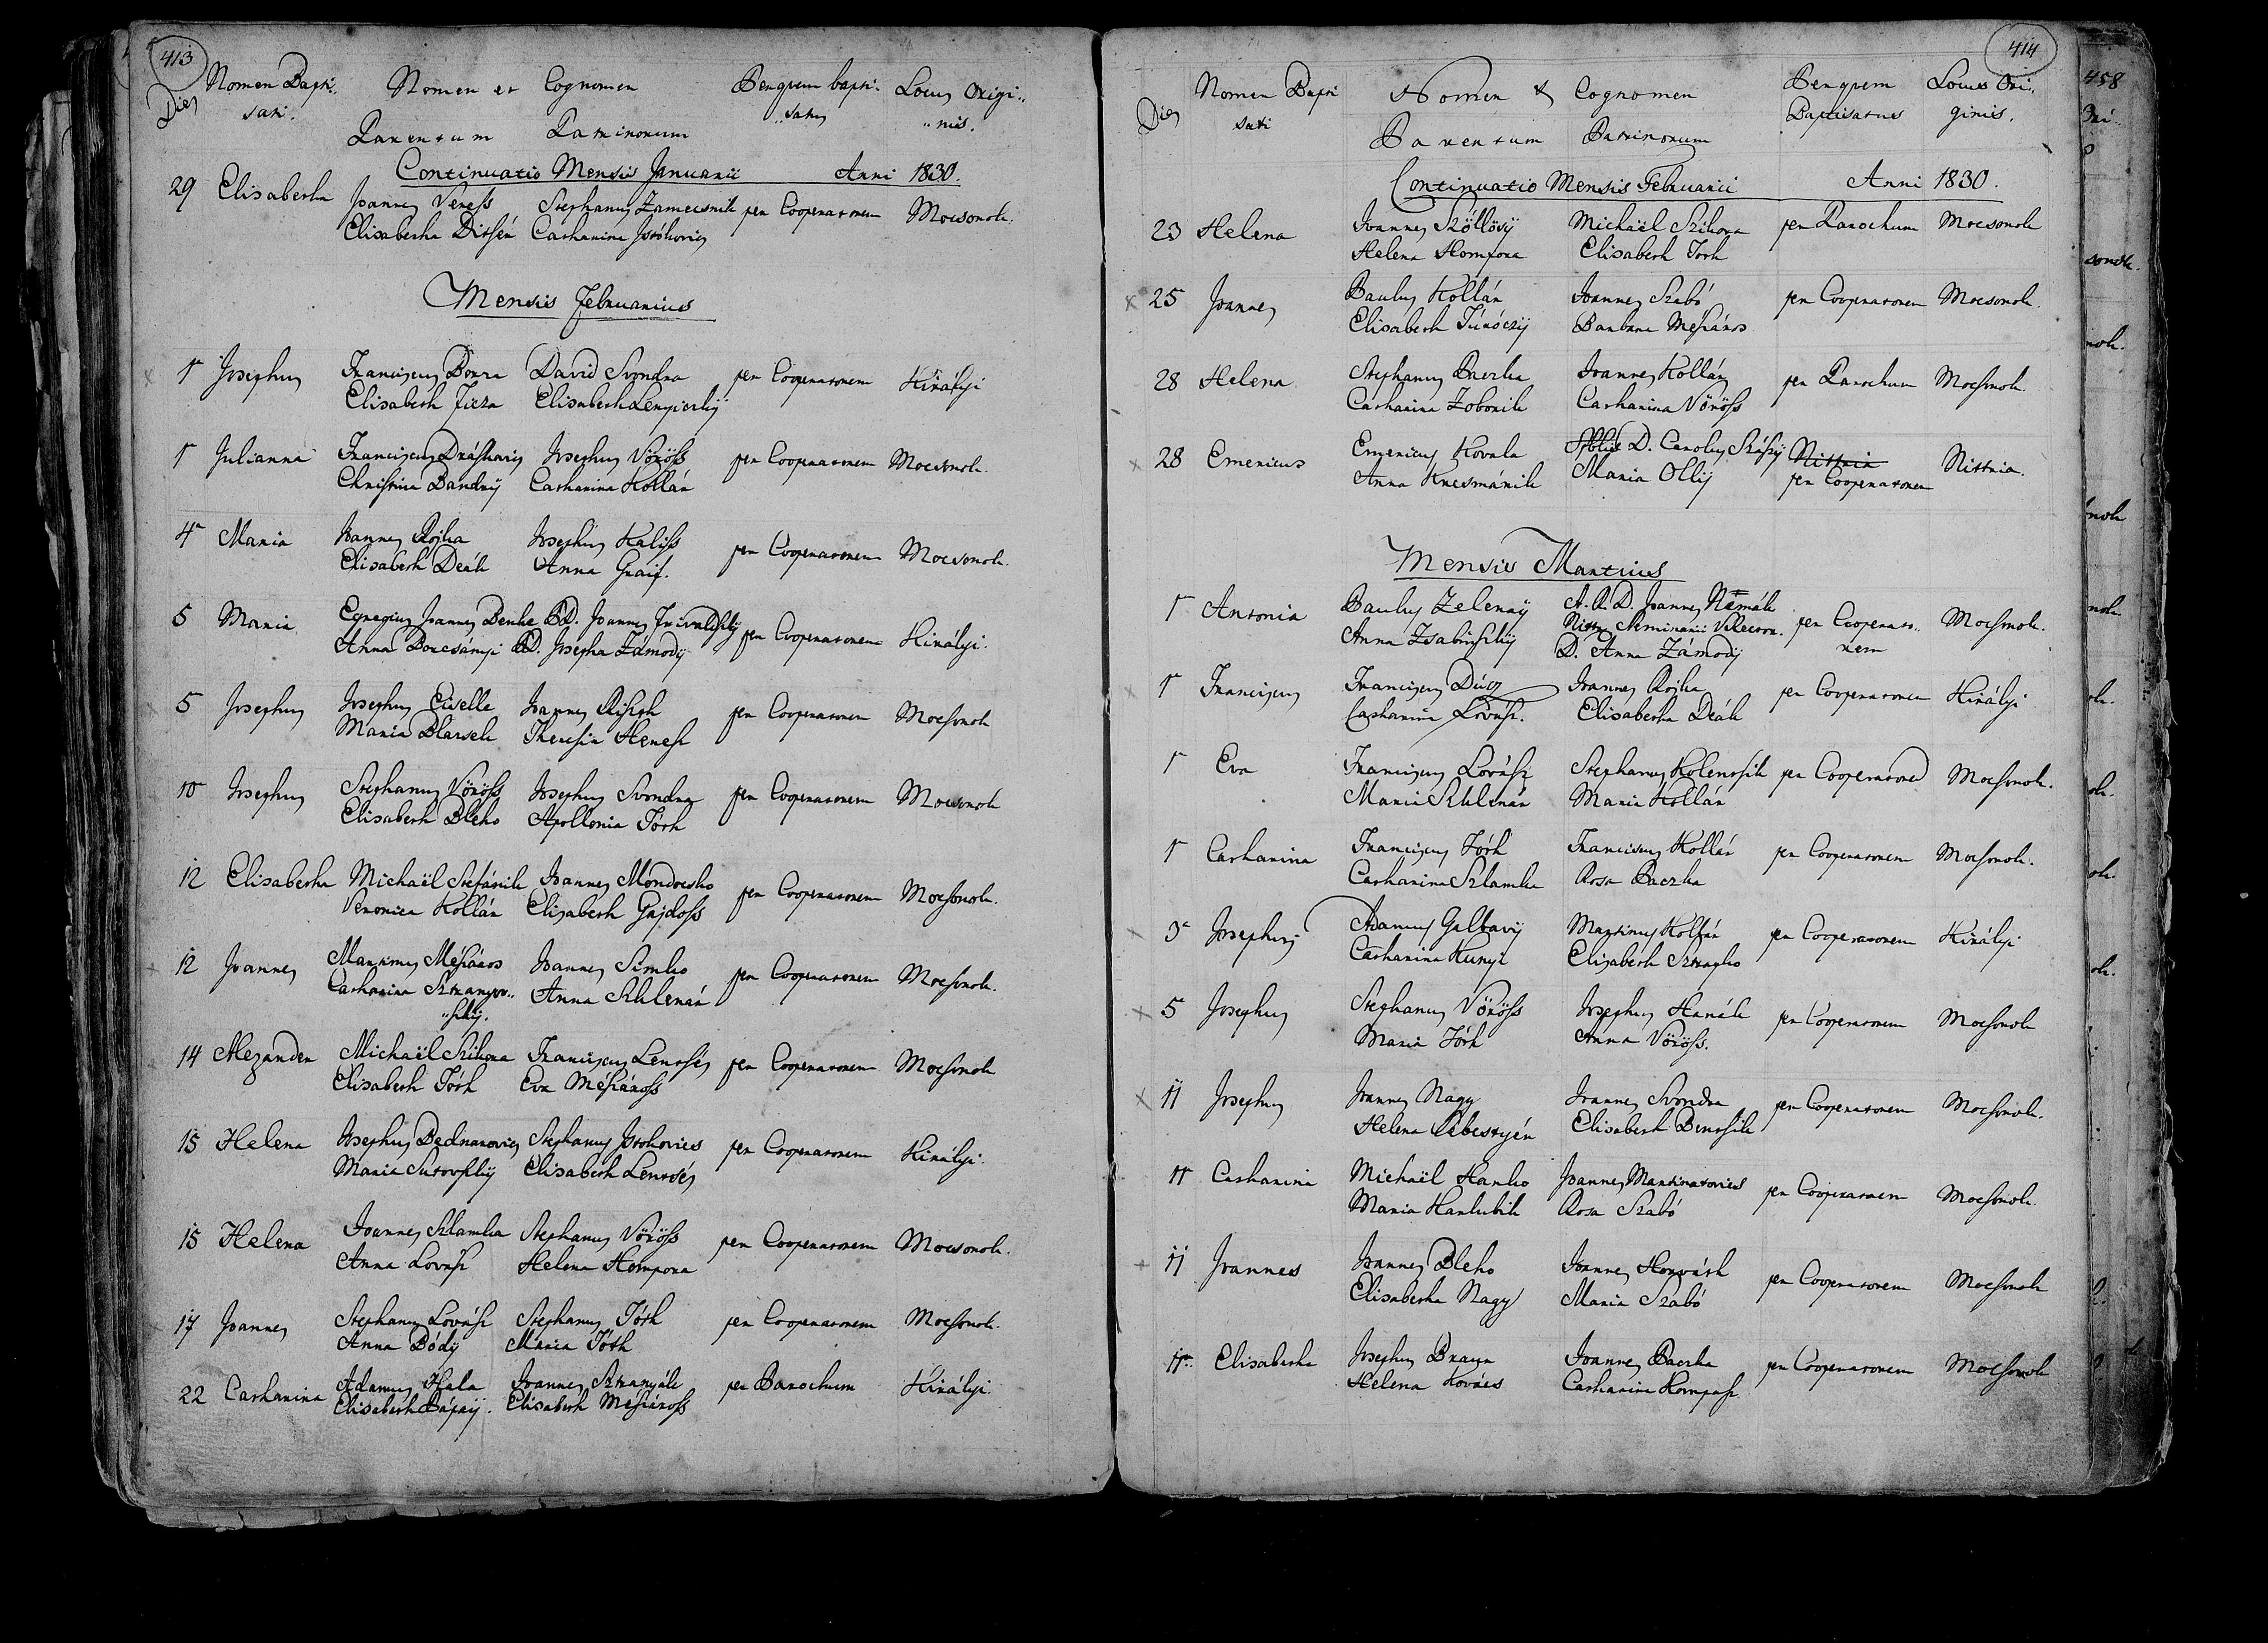 413
Dies Nomen Bapti.. Nomen et Cognomen Per quem bapti- Locus Origi..
sati. Parentum Patrinorum ..satus ..nis.
Continuatio Mensis Januarii Anni 1830.
29 Elisabetha Joannes Veress Stephanus Zamecsnik per Cooperatorem Mocsonok.
Elisabetha Ditsér Catharina Istókovics
Mensis Februarius
1 Josephus Franciscus Dora David Svondra per Cooperatorem Királyi
Elisabeth Ficza Elisabeth
1 Julianna Franciscus Josephus Vöröss per Cooperatorem Mocsonok.
Christina Bandry Catharina Kollár
4 Maria Joannes Rojka Josephus Kaliss per Cooperatorem Mocsonok.
Elisabeth Deák Anna Graif.
5 Maria Egregius Joannes Benke PD. Joannes per Cooperatorem Királyi.
Anna Borcsányi PD. Josepha Zámody
5 Josephus Josephus Eiselle Joannes per Cooperatorem Mocsonok
Maria Theresia
10 Josephus Stephanus Vöröss Josephus Svondra per Cooperatorem Mocsonok
Elisabeth Bleho Apollonia Tóth
12 Elisabetha Michaël Stefánik Joannes Mondocsko per Cooperatorem Mocsonok.
Veronica Kollár Elisabeth Gajdoss
12 Joannes Martinus Mésiáros Joannes Simko per Cooperatorem Mocsonok.
Catharina Sztranyov.. Anna Sklenár
..szky.
14 Alexander Michaël Szikora Franciscus Lentsés per Cooperatorem Mocsonok
Elisabeth Tóth Eva Mésiáross
15 Helena Josephus Bednarovics Stephanus Istokovics per Cooperatorem Királyi.
Maria Sutovszky Elisabeth Lentsés
15 Helena Joannes Szlamka Stephanus Vöröss per Cooperatorem Mocsonok.
Anna Lovász Helena Hompora
17 Joannes Stephanus Lovász Stephanus Tóth per Cooperatorem Mocsonok.
Anna Bódy Maria Tóth
22 Catharina Adamus Hala Joannes Sztranyák per Parochum Királyi.
Elisabeth Pápay. Elisabeth Mésiáross
414
Dies Nomen Bapti Nomen & Cognomen Per quem Locus Ori..
sati Parentum Patrinorum Baptisatus ginis.
Continuatio Mensis Februarii Anni 1830.
23 Helena Joannes Szöllösy Michaël Szikora per Parochum Mocsonok
Helena Hompora Elisabeth Toth
x 25 Joannes Paulus Kollár Joannes Szabó per Cooperatorem Mocsonok.
Elisabeth Túróczy Barbara Mesiáros
28 Helena Stephanus Paczka Joannes Kollár per Parochum Mocsonok.
Catharina Zobonik Catharina Vöröss
x 28 Emericus Emericus Kovala D. Carolus Szászy Nittria
Anna Krcsmárik Maria Olly per Cooperatorem Nittria.
Mensis Martius
1 Antonia Paulus Zelenay A. R. D. Joannes Némák per Cooperato.. Mocsonok.
Anna Zsabinszky Nittr. Seminarii V.Rector. rem
D. Anna Zámody
x 1 Franciscus Franciscus Dúcz Joannes Rojka per Cooperatorem Királyi
Catharina Lovász. Elisabetha Deák
1 Eva Franciscus Lovász Stephanus Kolentsik per Cooperatorem Mocsonok.
Maria Sklenár Maria Kollár
1 Catharina Franciscus Tóth Franciscus Kollár per Cooperatorem Mocsonok.
Catharina Szlamka Rosa Paczka
3 Josephus Adamus Galbavy Martinus Kollár per Cooperatorem Királyi
Catharina Kunyi Elisabeth
x 5 Josephus Stephanus Vöröss Josephus Hanák per Cooperatorem Mocsonok
Maria Tóth Anna Vöröss.
x 11 Josephus Joannes Nagy Joannes Svondra per Cooperatorem Mocsonok.
Helena Sebestyén Elisabeth Bentsik
11 Catharina Michaël Hanko Joannes Martinatovics per Cooperatorem Mocsonok.
Maria Hanlubik Rosa Szabó
+ 11 Joannes Joannes Bleho Joannes Horváth per Cooperatorem Mocsonok
Elisabetha Nagy Maria Szabó
11 Elisabetha Josephus Braun Joannes Paczka per Cooperatorem Mocsonok
Helena Kovács Catharina
458